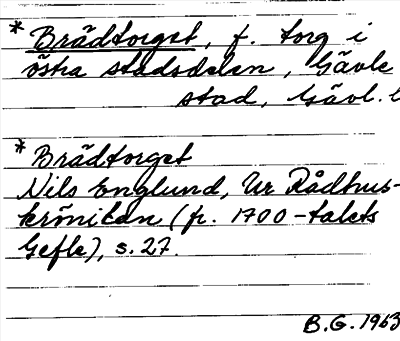 * Brädtorget, f. torg i
östra stadsdelen, Gävle
stad, Gävl. l
* Brädtorget
Nils Englund, Ur Rådhus-
krönikan (fr. 1700-talets
Gefle), s. 27.
B.G. 1963